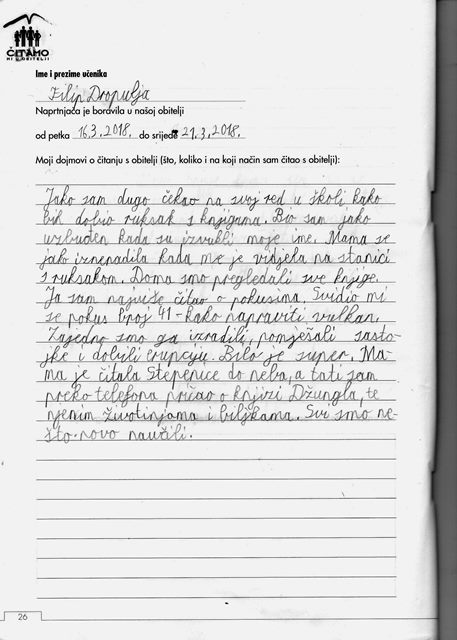 ČITAMO
MI U OBITELJI
Ime i prezime učenika
Filip Dropulja
Naprtnjača je boravila u našoj obitelji
od petka 16.3.2018. do srijede 21.3.2018.
Moji dojmovi o čitanju s obitelji (što, koliko i na koji način sam čitao s obitelji):
Jako sam dugo čekao na svoj red u školi kako
bih dobio ruksak s knjigama. Bio sam jako
uzbuđen kada su izvukli moje ime. Mama se
jako iznenadila kada me je vidjela na stanici
s ruksakom. Doma smo pregledali sve knjige.
Ja sam najviše čitao o pokusima. Svidio mi
se pokus broj 41-kako napraviti vulkan.
Zajedno smo ga izradili, pomješali sasto-
jke i dobili erupciju. Bilo je super. Ma-
ma je čitala Stepenice do neba, a tati sam
preko telefona pričao o knjizi Džungla, te
njenim životinjama i biljkama. Svi smo ne-
što novo naučili.
26